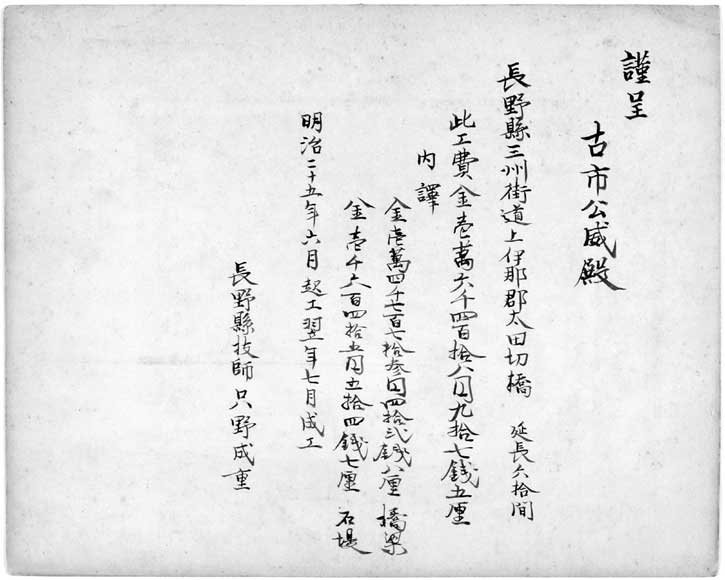 謹呈
古市公威殿
長野縣三州街道上伊那郡太田切橋 延長六拾間
此工費金壱萬六千四百拾八円九拾七銭五厘
内譯
金壱萬四千七百七拾参円四拾弐銭八厘 橋梁
金壱千六百四拾五円五拾四銭七厘 石堤
明治二十五年六月起工翌年七月成工
長野縣技師只野成重